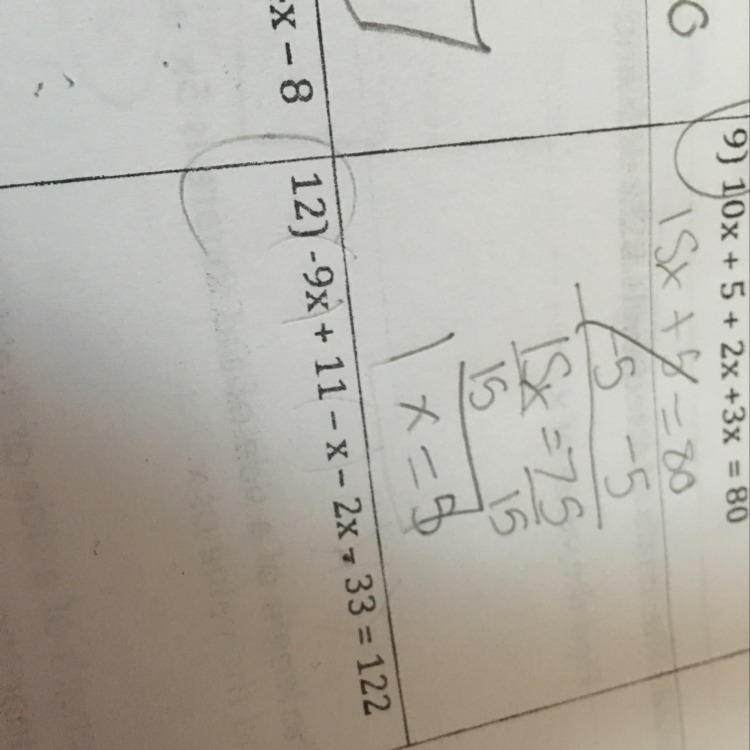 x – 8
6
9) 10x + 5 + 2x +3x = 80
15x + 5 = 80
-5 -5
15x = 75
15 15
x = 5
12) -9x + 11 – x – 2x - 33 = 122